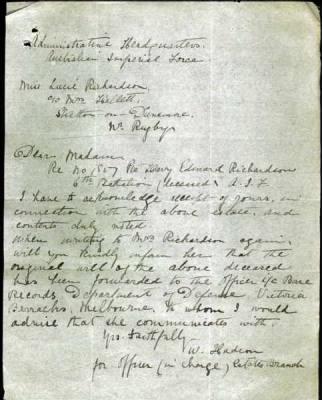 Administrative Headquarters.
Australian Imperial Force
Miss Lucie Richardson
c/o Mrs Hallett
Stretton-on-Dunsmore
Nr. Rugby
Dear Madam
Re No Pte Henry Edward Richardson
6th Battalion (deceased) A.I.F
I have to acknowledge receipt of yours, in
connection with the above estate, and
contents duly noted
When writing to Mrs Richardson again,
will you kindly inform her that the
original will of the above deceased
has been forwarded to the Officer i/c Base
Records, Department of Defence, Victoria
Barracks, Melbourne, to whom I would
advise that she communicates with.
Yrs. Faithfully
W. Hadson
for Officer (in charge) Estates Branch